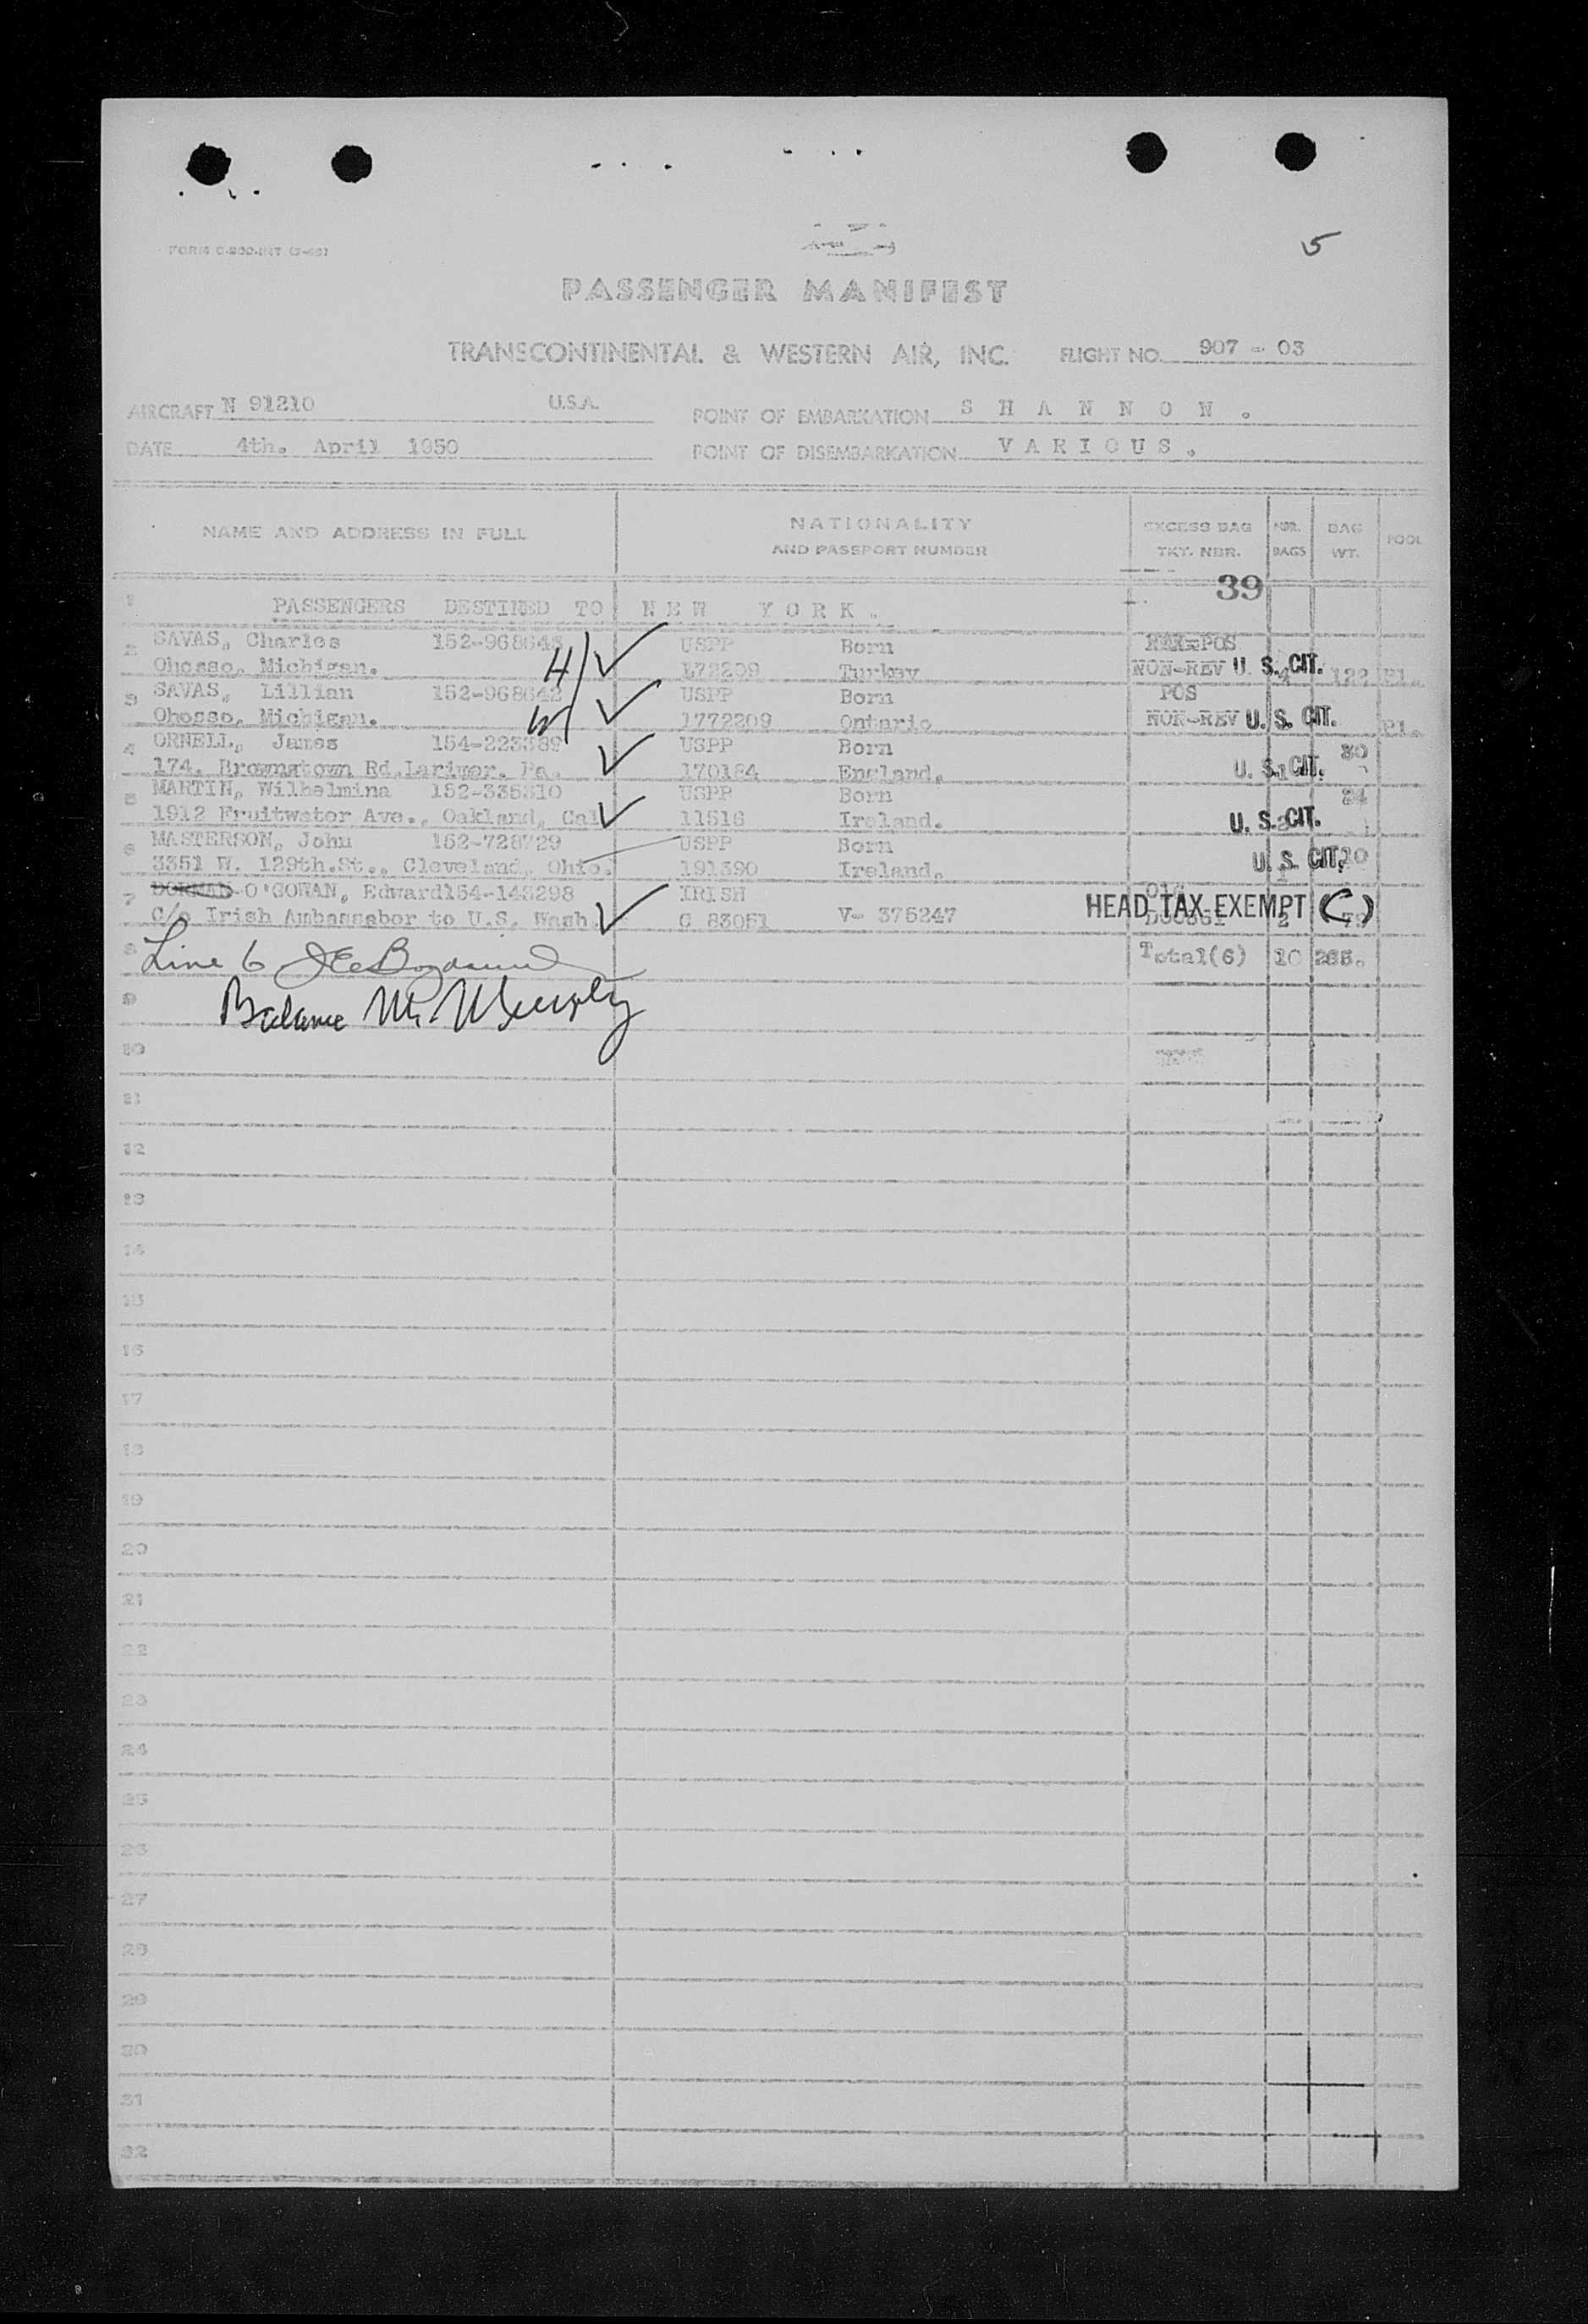 5
PASSENGER MANIFEST
TRANSCONTINENTAL & WESTERN AIR, INC. FLIGHT NO. 907 - 03
AIRCRAFT N 91210 U.S.A. POINT OF EMBARKATION S H A N N O N .
DATE 4th. April 1950 POINT OF DISEMBARKATION V A R I O U S .
NAME AND ADDRESS IN FULL NATIONALITY EXCESS BAG NBR. BAG POOL
AND PASSPORT NUMBER TKT. NBR. BAGS WT.
39
1 PASSENGERS DESTINED TO N E W Y O R K .
2 SAVAS, Charles USPP Born
Ohosso, Michigan. H Turkey NON-REV U. S. CIT. 122
3 SAVAS, Lillian 152-968642 USPP Born POS
Ohosso, Michigan. W 1772209 Ontario NON-REV U. S. CIT.
4 ORNELL, James USPP Born 30
174. Brownstown Rd. Larimer. Pa. 170184 England. U. S. CIT.
5 MARTIN, Wilhelmina USPP Born 24
1912 Fruitwater Ave., Oakland, Cal 11516 Ireland. U. S. CIT.
6 MASTERSON, John 152-728729 USPP Born
3351 W. 129th.St., Cleveland, Ohio. 191390 Ireland. U. S. CIT.
7 O'GOWAN, Edward 154-143298 IRISH
C/o Irish Ambassabor to U.S. Wash C 83051 V- 375247 HEAD TAX EXEMPT (C) 2
8 Line 6 Total(6) 10
9 Balance M. Murphy
10
11
12
13
14
15
16
17
18
19
20
21
22
23
24
25
26
27
28
29
30
31
32